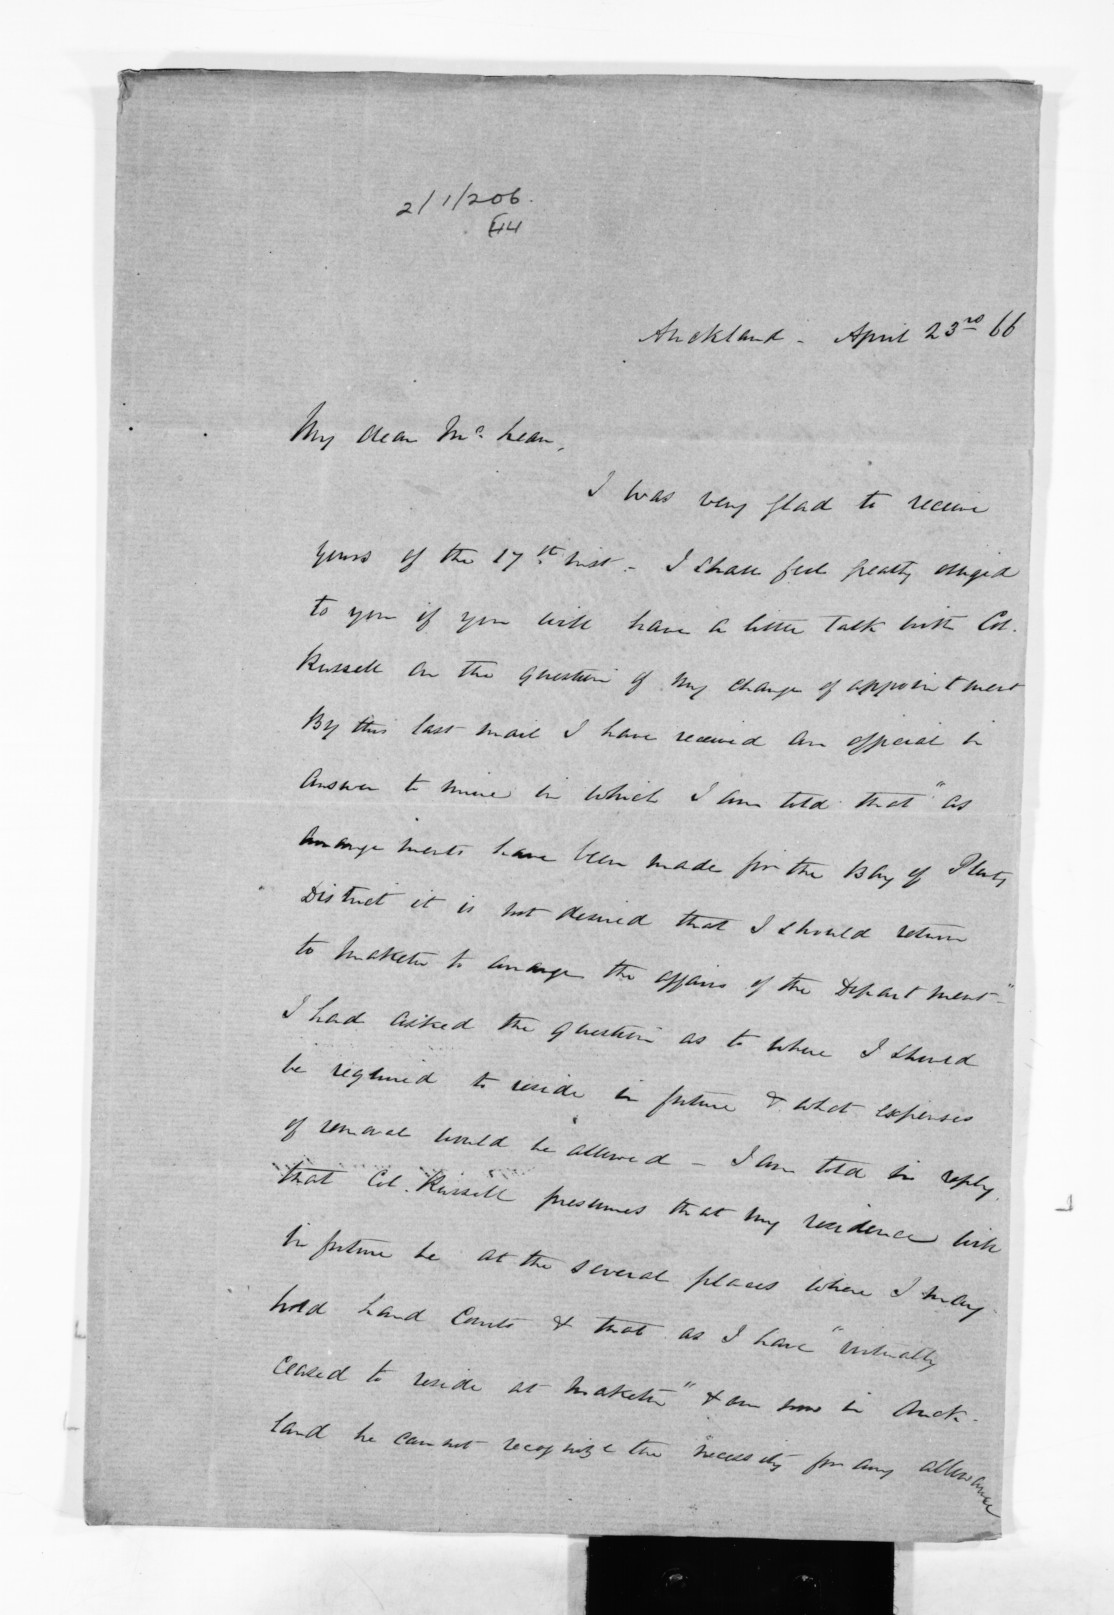 2/1/206.
44
Auckland - April 23rd 66
My dear Mc. Lean,
I was very glad to receive
yours of the 17th inst - I shall feel greatly obliged
to you if you will have a little talk with Col.
Russell on the question of my change of appointment
By this last mail I have received an official in
answer to mine in which I am told that "as
arrangements have been made for the Bay of Plenty
District it is not desired that I should return
to Maketu to arrange the affairs of the Department-"
I had asked the question as to where I should
be required to reside in future & what expenses
of removal would be allowed - I am told in reply
that Col. Russell presumes that my residence will
in future be at the several places where I may
hold Land Courts & that as I have "virtually
ceased to reside at Maketu" & am now in Auck-
land he cannot recognize the necessity for any allowance